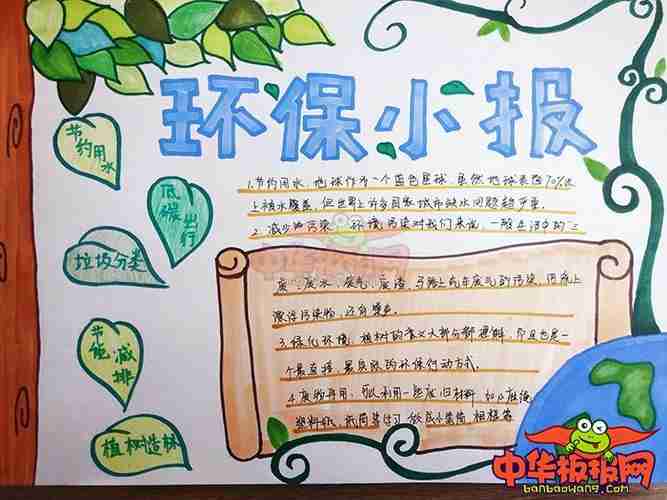 环保小报
节约用水
低碳出行
垃圾分类
节能减排
植树造林
1.节约用水,地球作为一个蓝色星球,虽然地球表面70%以
上被水覆盖,但世界上许多国家城市缺水问题很严重。
2.减少污染 环境污染对我们来说,一般生活中的"三
废",废水、废气、废渣,马路上汽车废气的污染,
漂浮污染物,还有噪音。
3.绿化环境,植树的意义大部分都理解,而且也是一
个最直接,最实效的环保行动方式。
4.废物再用,可以利用一些废旧材料,如
塑料纸,
中华板报网
中华板报网
banbaowang.com